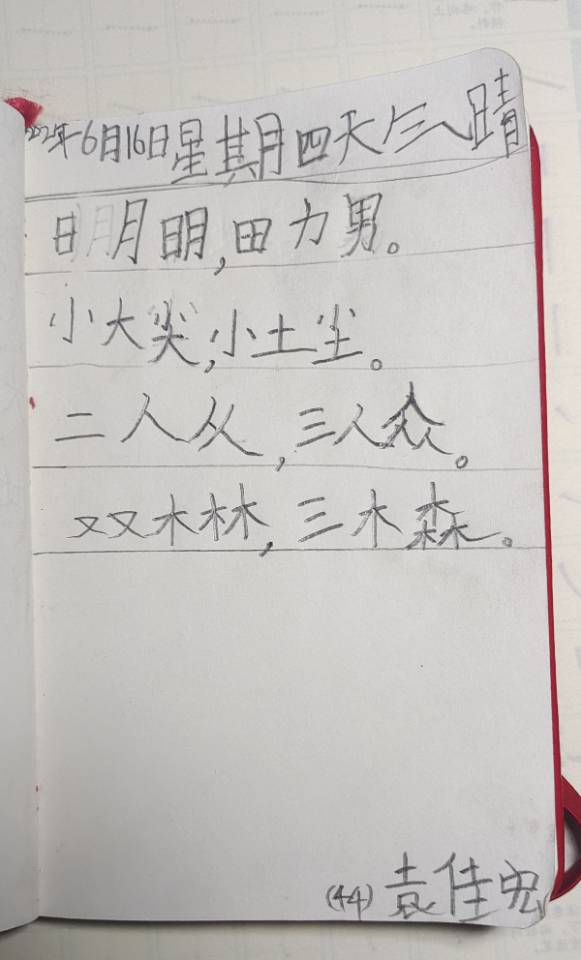 2022年6月16日星期四天气晴
日月明,田力男。
小大尖,小土尘。
二人从,三人众。
双木林,三木森。
(44)袁佳宏